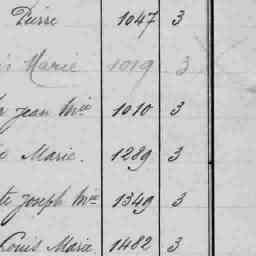 Pierre 1047 3
Marie 1019 3
Jean Mie 1010 3
Marie. 1289 3
Joseph Mie 1349 3
Louis Marie 1482 3